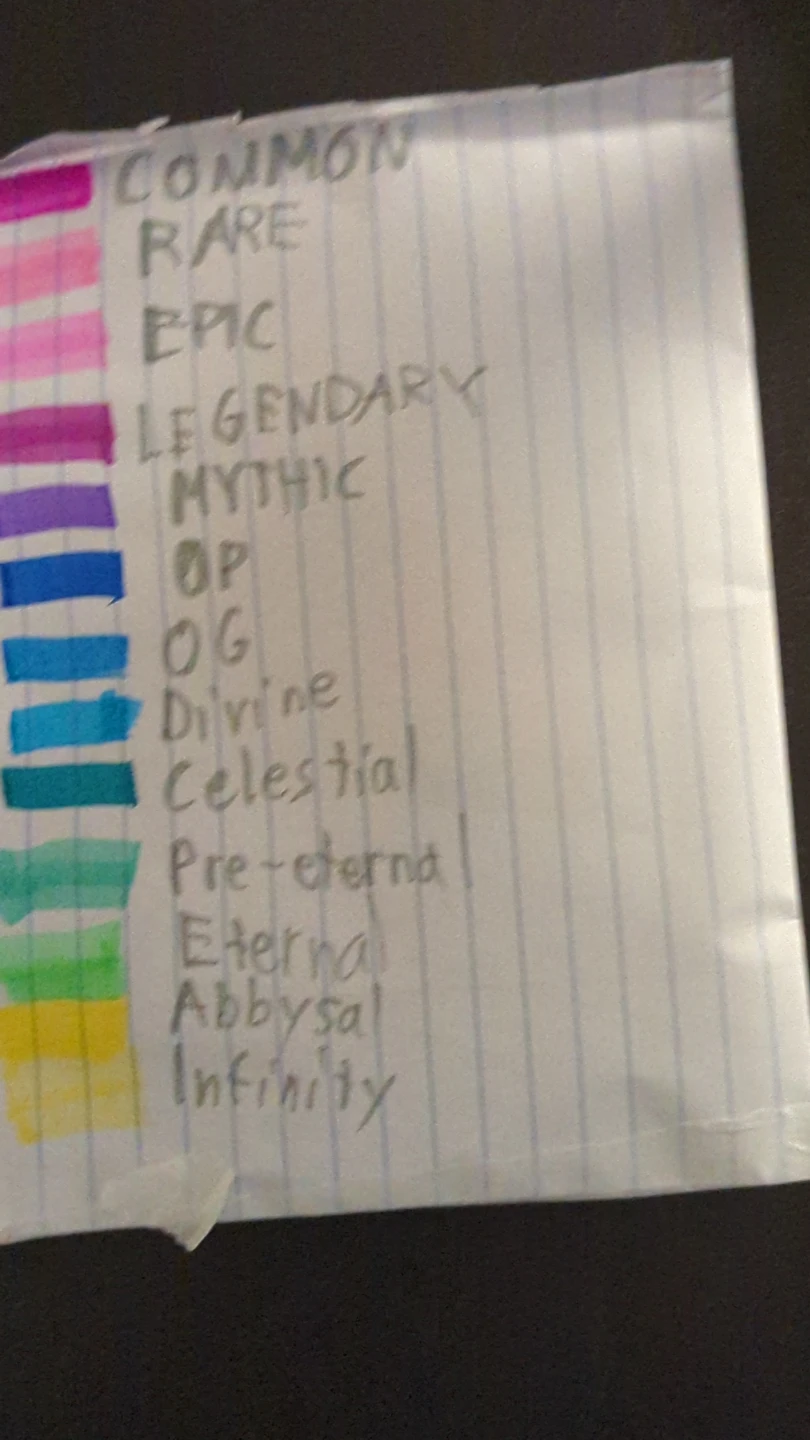 COMMON
RARE
EPIC
LEGENDARY
MYTHIC
OP
OG
Divine
Celestial
Pre-eternal
Eternal
Abbysal
Infinity